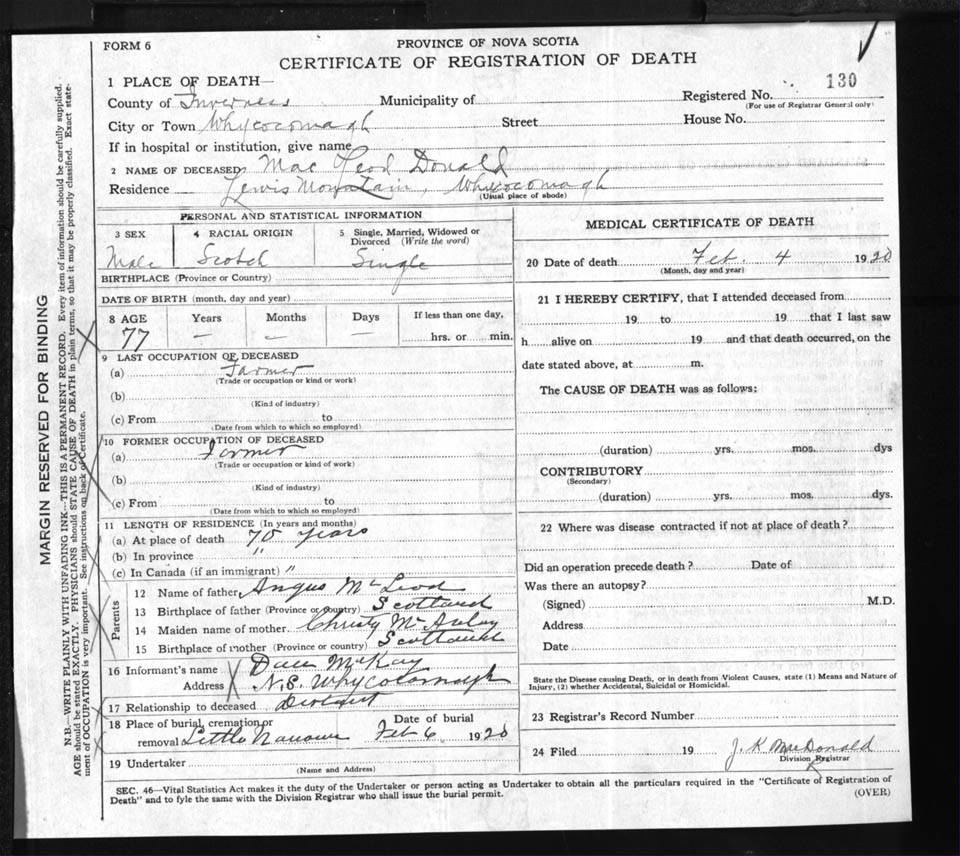 FORM 6
PROVINCE OF NOVA SCOTIA
CERTIFICATE OF REGISTRATION OF DEATH
130
1 PLACE OF DEATH—
County of Inverness Municipality of Registered No.
(For use of Registrar General only)
City or Town Whycocomagh Street House No.
If in hospital or institution, give name
2 NAME OF DECEASED Mac Leod Donald
Residence Lewis Mountain, Whycocomagh
(Usual place of abode)
PERSONAL AND STATISTICAL INFORMATION
3 SEX 4 RACIAL ORIGIN 5 Single, Married, Widowed or Divorced (Write the word)
Male Scotch Single
BIRTHPLACE (Province or Country)
DATE OF BIRTH (month, day and year)
8 AGE Years Months Days If less than one day,
77 — — — hrs. or min.
9 LAST OCCUPATION OF DECEASED
(a) Farmer
(Trade or occupation or kind or work)
(b)
(Kind of industry)
(c) From to
(Date from which to which so employed)
10 FORMER OCCUPATION OF DECEASED
(a) Farmer
(Trade or occupation or kind of work)
(b)
(Kind of industry)
(c) From to
(Date from which to which so employed)
11 LENGTH OF RESIDENCE (In years and months)
(a) At place of death 70 years
(b) In province "
(c) In Canada (if an immigrant) "
Parents
12 Name of father Angus McLeod
13 Birthplace of father (Province or country) Scotland
14 Maiden name of mother Christy McAulay
15 Birthplace of mother (Province or country) Scotland
16 Informant's name Dan McKay
Address N.S. Whycocomagh
17 Relationship to deceased
18 Place of burial, cremation or Date of burial
removal Little Narrows Feb 6 1920
19 Undertaker
(Name and Address)
MEDICAL CERTIFICATE OF DEATH
20 Date of death Feb. 4 1920
(Month, day and year)
21 I HEREBY CERTIFY, that I attended deceased from
19 to 19 that I last saw
h alive on 19 and that death occurred, on the
date stated above, at m.
The CAUSE OF DEATH was as follows:
(duration) yrs. mos. dys
CONTRIBUTORY
(Secondary)
(duration) yrs. mos. dys.
22 Where was disease contracted if not at place of death?
Did an operation precede death? Date of
Was there an autopsy?
(Signed) M.D.
Address
Date
State the Disease causing Death, or in death from Violent Causes, state (1) Means and Nature of
Injury, (2) whether Accidental, Suicidal or Homicidal.
23 Registrar's Record Number
24 Filed 19 J. K. MacDonald
Division Registrar
SEC. 46—Vital Statistics Act makes it the duty of the Undertaker or person acting as Undertaker to obtain all the particulars required in the "Certificate of Registration of
Death" and to fyle the same with the Division Registrar who shall issue the burial permit.
(OVER)
MARGIN RESERVED FOR BINDING
N.B.—WRITE PLAINLY WITH UNFADING INK—THIS IS A PERMANENT RECORD. Every item of information should be carefully supplied.
AGE should be stated EXACTLY. PHYSICIANS should STATE CAUSE OF DEATH in plain terms, so that it may be properly classified. Exact state-
ment of OCCUPATION is very important. See instructions on back of Certificate.